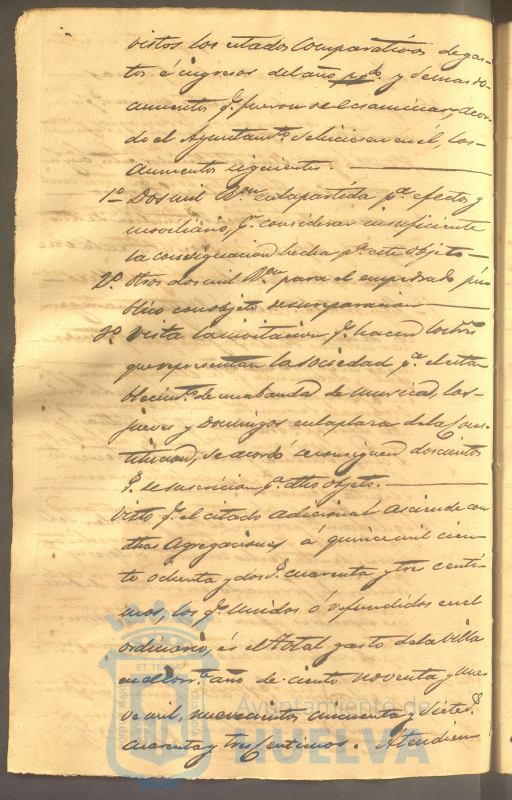 vistos los estados Comparativos de gas-
tos é ingresos del año pp.do y demas do-
cumentos q.e fueron del ecsaminar, acor-
do el Ayuntam.to se hiciesen en el, los
Aumentos siguientes.
1.º Dos mil R.on en la partida p.a efectos y
moviliario, p.r considerar insuficiente
la consignacion hecha p.a este objeto
2.º Otros dos mil R.on para el empedrado pú-
blico con objeto de su reparacion
3.º Vista la invitacion q.e hacen los Sres
que representan la sociedad p.a el esta-
blecim.to de una banda de musica, los
jueves y Domingos en la plaza de la Cons-
titucion, se acordó se consignen doscientos
r.s de suscricion p.a dho objeto.
Visto q.e el citado adicional asciende con
dhas Agregaciones á quince mil cien-
to ochenta y dos r.s cuarenta y tres centi-
mos, los q.e unidos ó refundidos en el
ordinario, és el total gasto de la villa
en el corr.te año de ciento noventa y nue-
ve mil, nuevecientos cincuenta y siete r.s
cuarenta y tres Centimos. Atendien
Ayuntamiento de
HUELVA